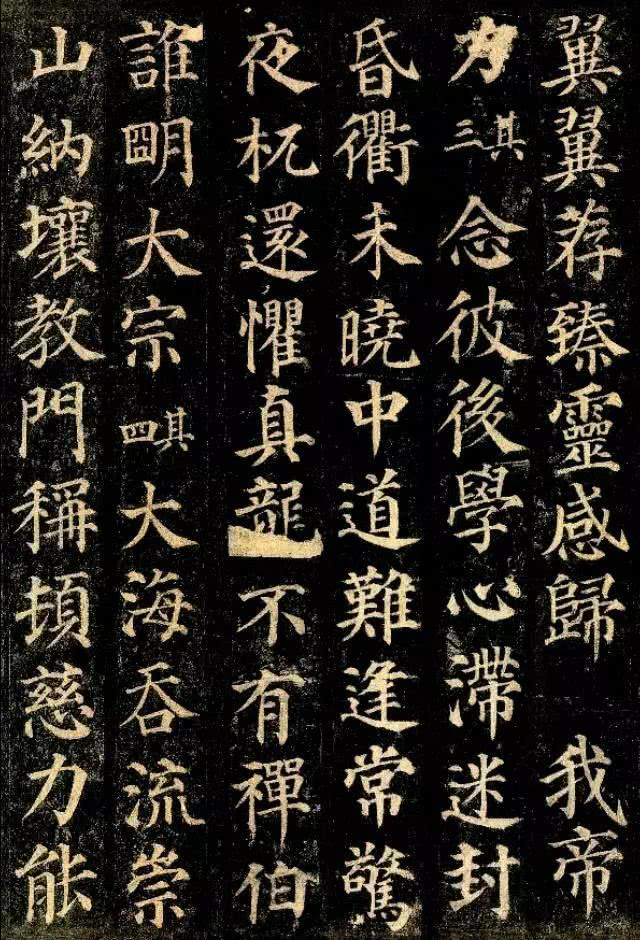 翼翼荐臻靈感歸我帝
力其三念彼後學心滯迷封
昏衢未曉中道難逢常驚
夜杌還懼真龍不有禪伯
誰明大宗其四大海吞流崇
山納壤教門稱頓慈力能